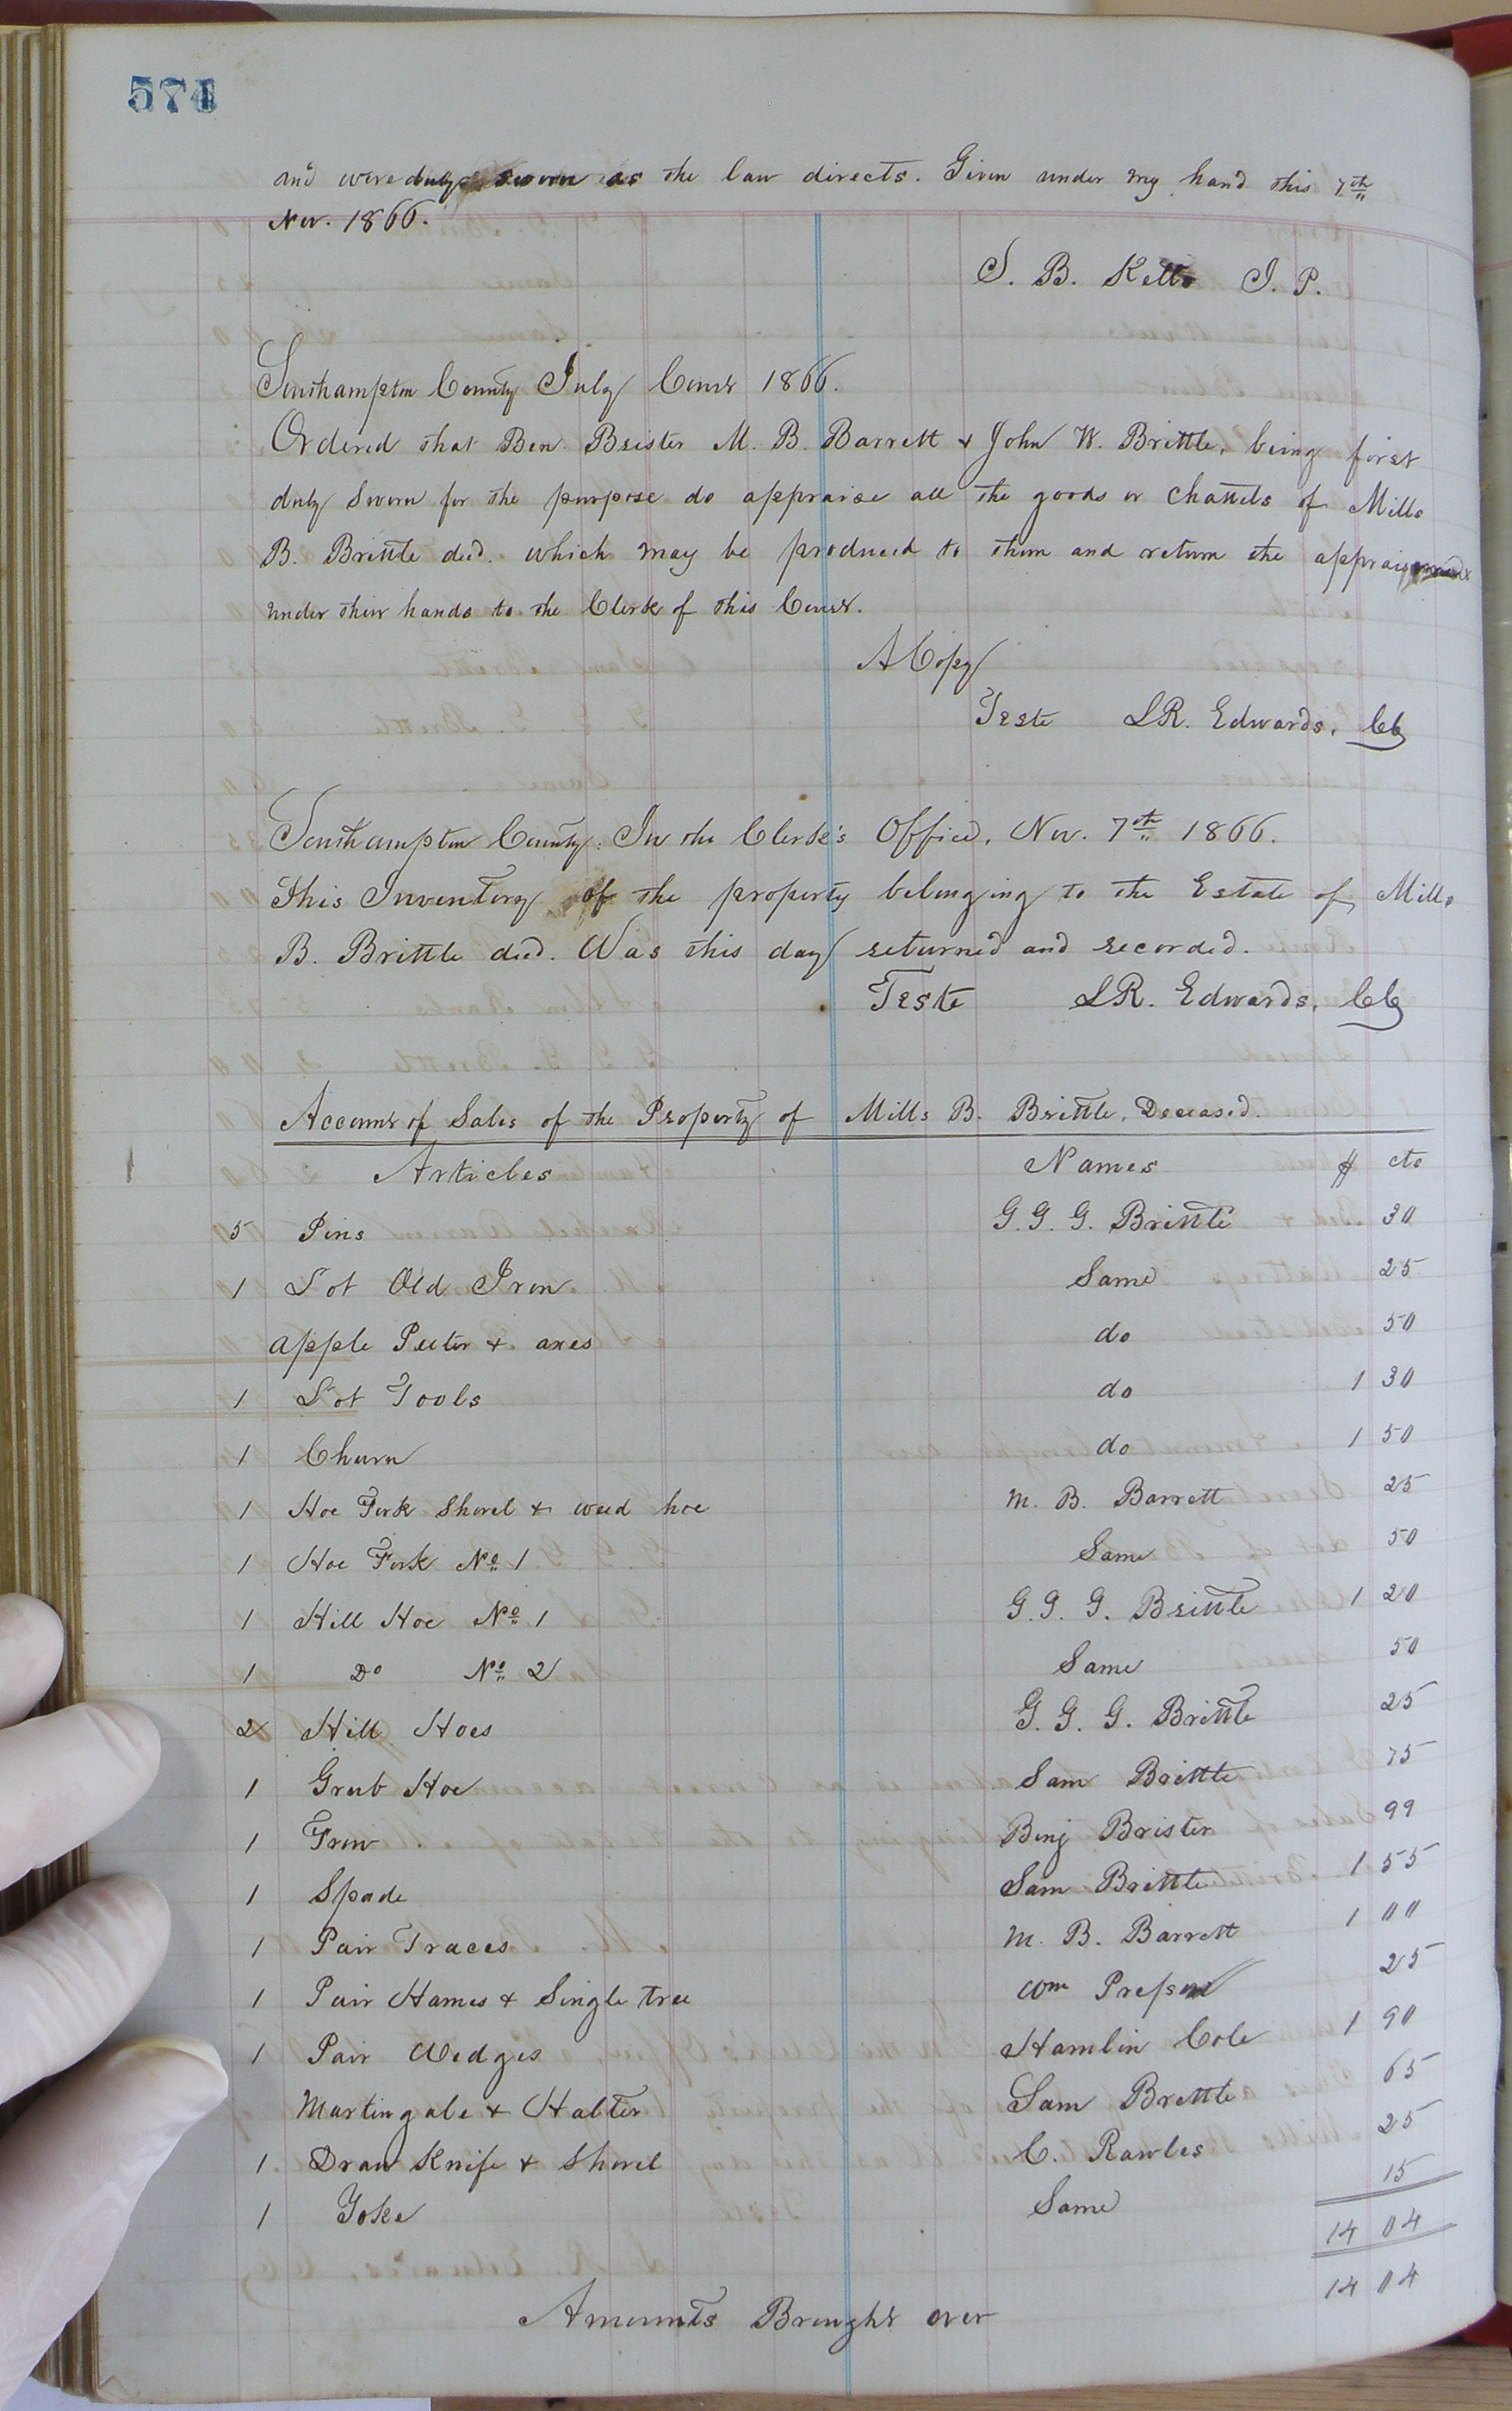 574
and were duly sworn as the law directs. Given under my hand this 7th
Nov. 1866.
S. B. Kello J. P.
Southampton County July Court 1866.
Ordered that Ben. Brister M. B. Barrett & John W. Brittle, being first
duly sworn for the purpose do appraise all the goods or chattels of Mills
B. Brittle decd. which may be produced to them and return the appraisement
under their hands to the Clerk of this Court.
A Copy
Teste L R. Edwards, CC
Southampton County: In the Clerk's Office, Nov. 7th 1866.
This Inventory of the property belonging to the Estate of Mills
B. Brittle decd. Was this day returned and recorded.
Teste L R. Edwards, CC
Account of Sales of the Property of Mills B. Brittle, Deceased.
Articles Names $ cts
5 Pins G. G. G. Brittle 30
1 Lot Old Iron Same 25
apple Peeler & axes do 50
1 Lot Tools do 1 30
1 Churn do 1 50
1 Hoe Fork Shovel & weed hoe M. B. Barrett 25
1 Hoe Fork No 1 Same 50
1 Hill Hoe No 1 G. G. G. Brittle 1 20
1 Do No 2 Same 50
2 Hill Hoes G. G. G. Brittle 25
1 Grub Hoe Sam Brittle 75
1 Frow Benj Brister 99
1 Spade Sam Brittle 1 55
1 Pair Traces M. B. Barrett 1 00
1 Pair Hames & Single tree Wm Presson 25
1 Pair Wedges Hamlin Cole 1 90
Martingale & Halter Sam Brittle 65
1 Draw Knife & Shovel C. Rawles 25
1 Yoke Same 15
14 04
14 04
Amounts Brought over